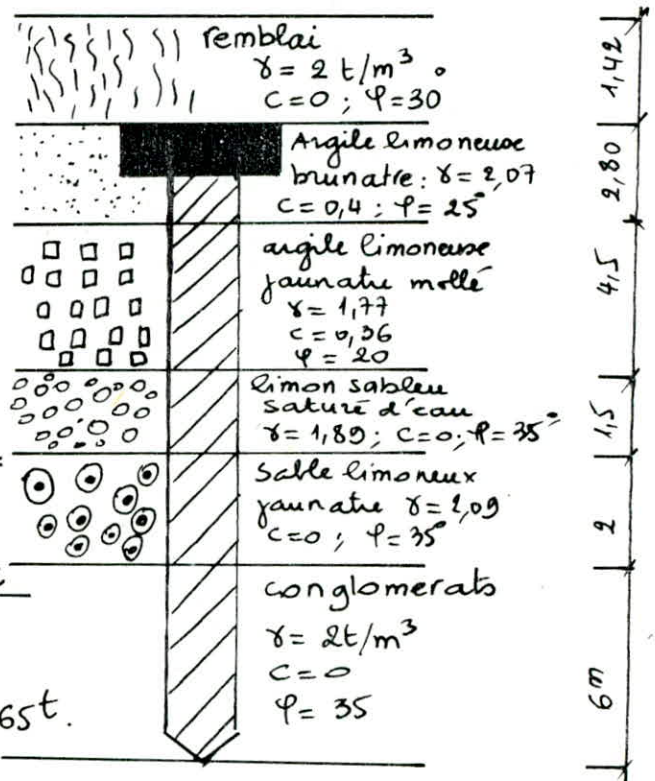 remblai
γ = 2 t/m³
c=0 ; φ=30°
1,42
Argile limoneuse
brunatre : γ = 2,07
c=0,4 ; φ= 25°
2,80
argile limoneuse
jaunatre mollé
γ = 1,77
c = 0,36
φ = 20
4,5
limon sableu
saturé d'eau
γ = 1,89 ; c=0 ; φ=35°
1,5
Sable limoneux
jaunatre γ = 2,09
c=0 ; φ= 35°
2
conglomerats
γ = 2t/m³
c = 0
φ = 35
6m
65t.